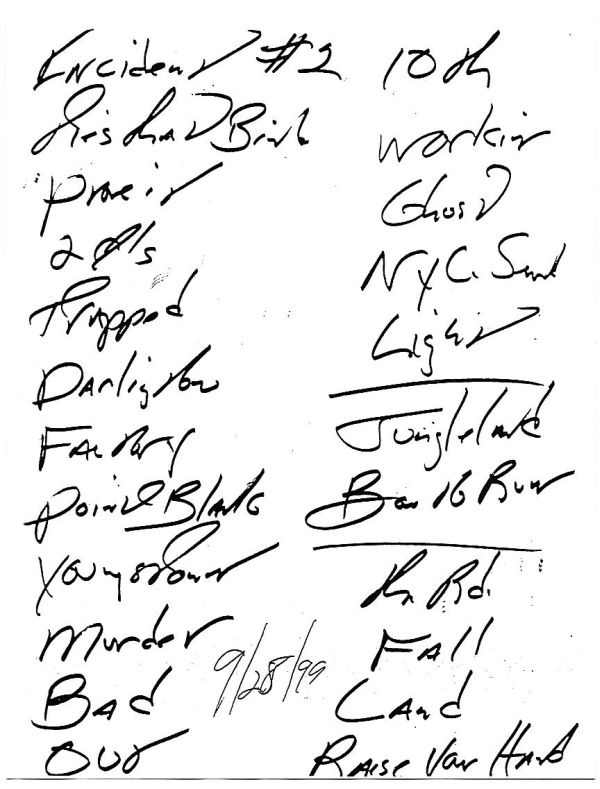 Incident #2
This Hard
Prove it
2 
Trapped
Darlington
Factory
Point Blank
Youngstown
Murder
Bad
Out
9/28/99
10th
Workin
Ghost
NYC. Sere
Light
Jungleland
Born to Run
Th. Rd.
Fall
Land
Raise Your Hand